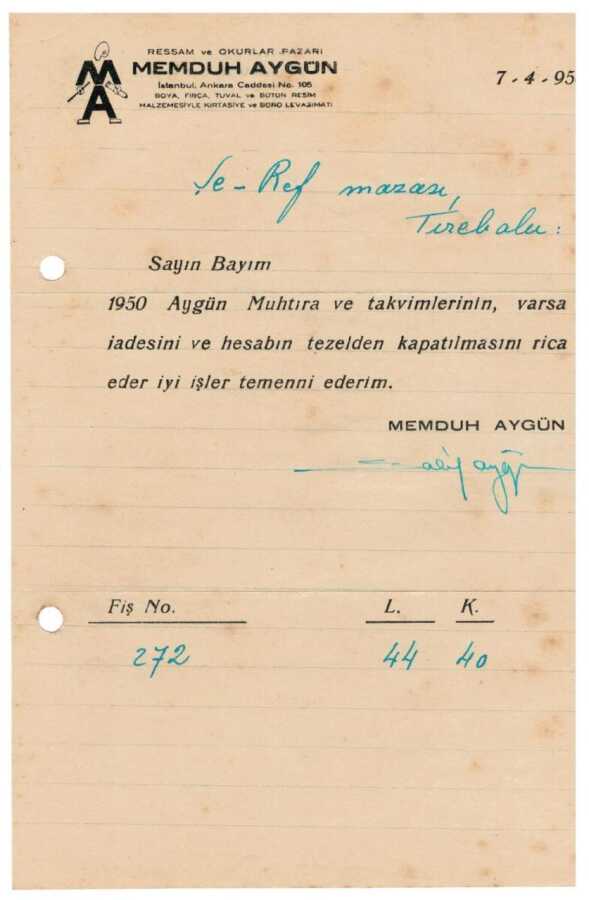 RESSAM ve OKURLAR PAZARI
MEMDUH AYGÜN
İstanbul, Ankara Caddesi No. 105
BOYA, FIRÇA, TUVAL ve BÜTÜN RESİM
MALZEMESİYLE KIRTASİYE ve BÜRO LEVAZIMATI
MA
7-4-95
Şe-Ref mazası,
Tirebolu:
Sayın Bayım
1950 Aygün Muhtıra ve takvimlerinin, varsa
iadesini ve hesabın tezelden kapatılmasını rica
eder iyi işler temenni ederim.
MEMDUH AYGÜN
aygün
Fiş No. L. K.
272 44 40